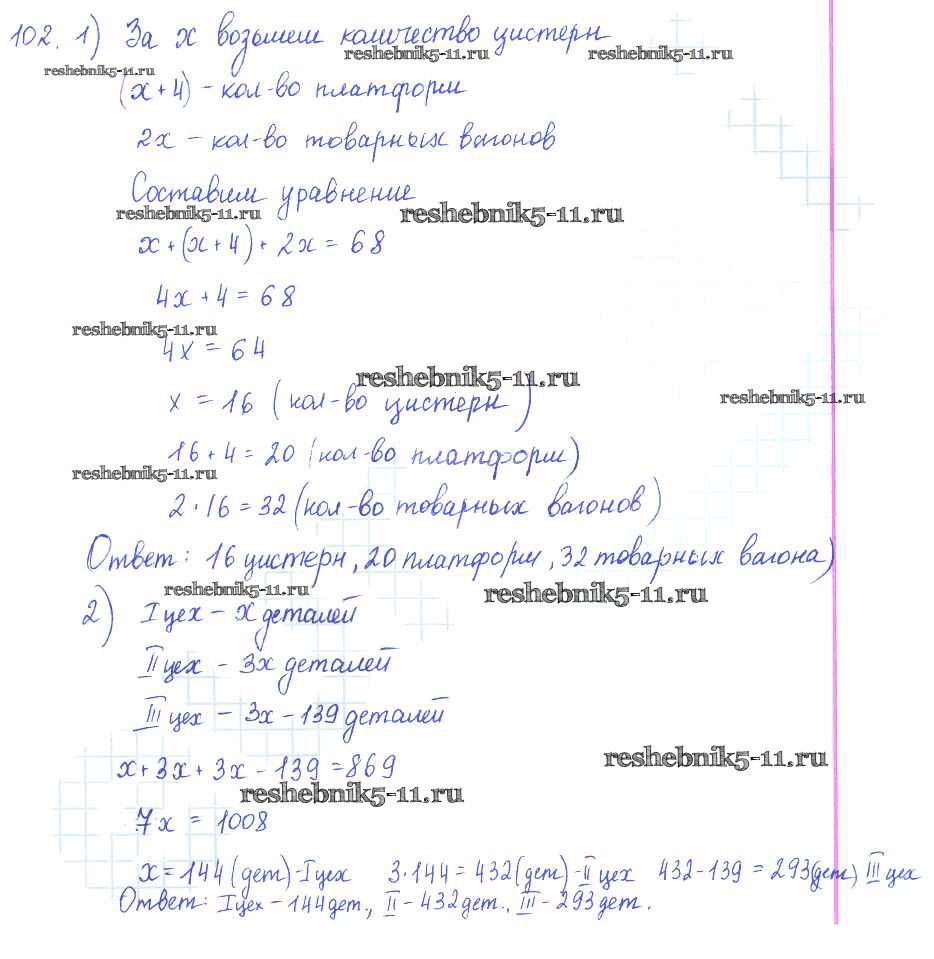 102. 1) За x возьмем количество цистерн
reshebnik5-11.ru reshebnik5-11.ru reshebnik5-11.ru
(x+4) - кол-во платформ
2x - кол-во товарных вагонов
Составим уравнение
reshebnik5-11.ru reshebnik5-11.ru
x+(x+4)+2x=68
4x+4=68
reshebnik5-11.ru
4x=64
reshebnik5-11.ru
x=16 (кол-во цистерн)
reshebnik5-11.ru
16+4=20 (кол-во платформ)
reshebnik5-11.ru
2·16=32 (кол-во товарных вагонов)
Ответ: 16 цистерн, 20 платформ, 32 товарных вагона)
reshebnik5-11.ru reshebnik5-11.ru
2) I цех - x деталей
II цех - 3x деталей
III цех - 3x-139 деталей
reshebnik5-11.ru
x+3x+3x-139=869
reshebnik5-11.ru
7x=1008
x=144 (дет)-I цех 3·144=432 (дет)-II цех 432-139=293 (дет) III цех
Ответ: I цех - 144 дет., II - 432 дет., III - 293 дет.